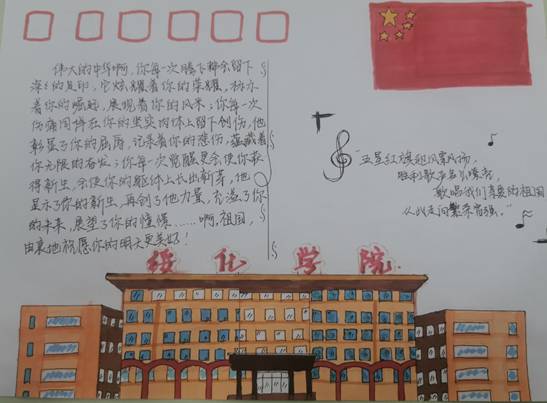 伟大的中华啊,你每一次腾飞都会留下
深深的足印,它炫耀着你的荣耀,标示
着你的崛起,展现着你的风采;你每一次
伤痛困惑在你的坚实肉体上留下创伤,他
彰显了你的屈辱,记录着你的悲伤,蕴藏着
你无限的奋发;你每一次觉醒灵会使你获
得新生,会使你的躯体上长出新芽,他
显示了你的新生,再创了他力量,充溢了你
的未来,展望了你的憧憬……啊,祖国,
由衷地祝愿你的明天更美好!
"五星红旗迎风飘扬,
胜利歌声多么嘹亮,
歌唱我们亲爱的祖国
从此走向繁荣富强。"
绥化学院